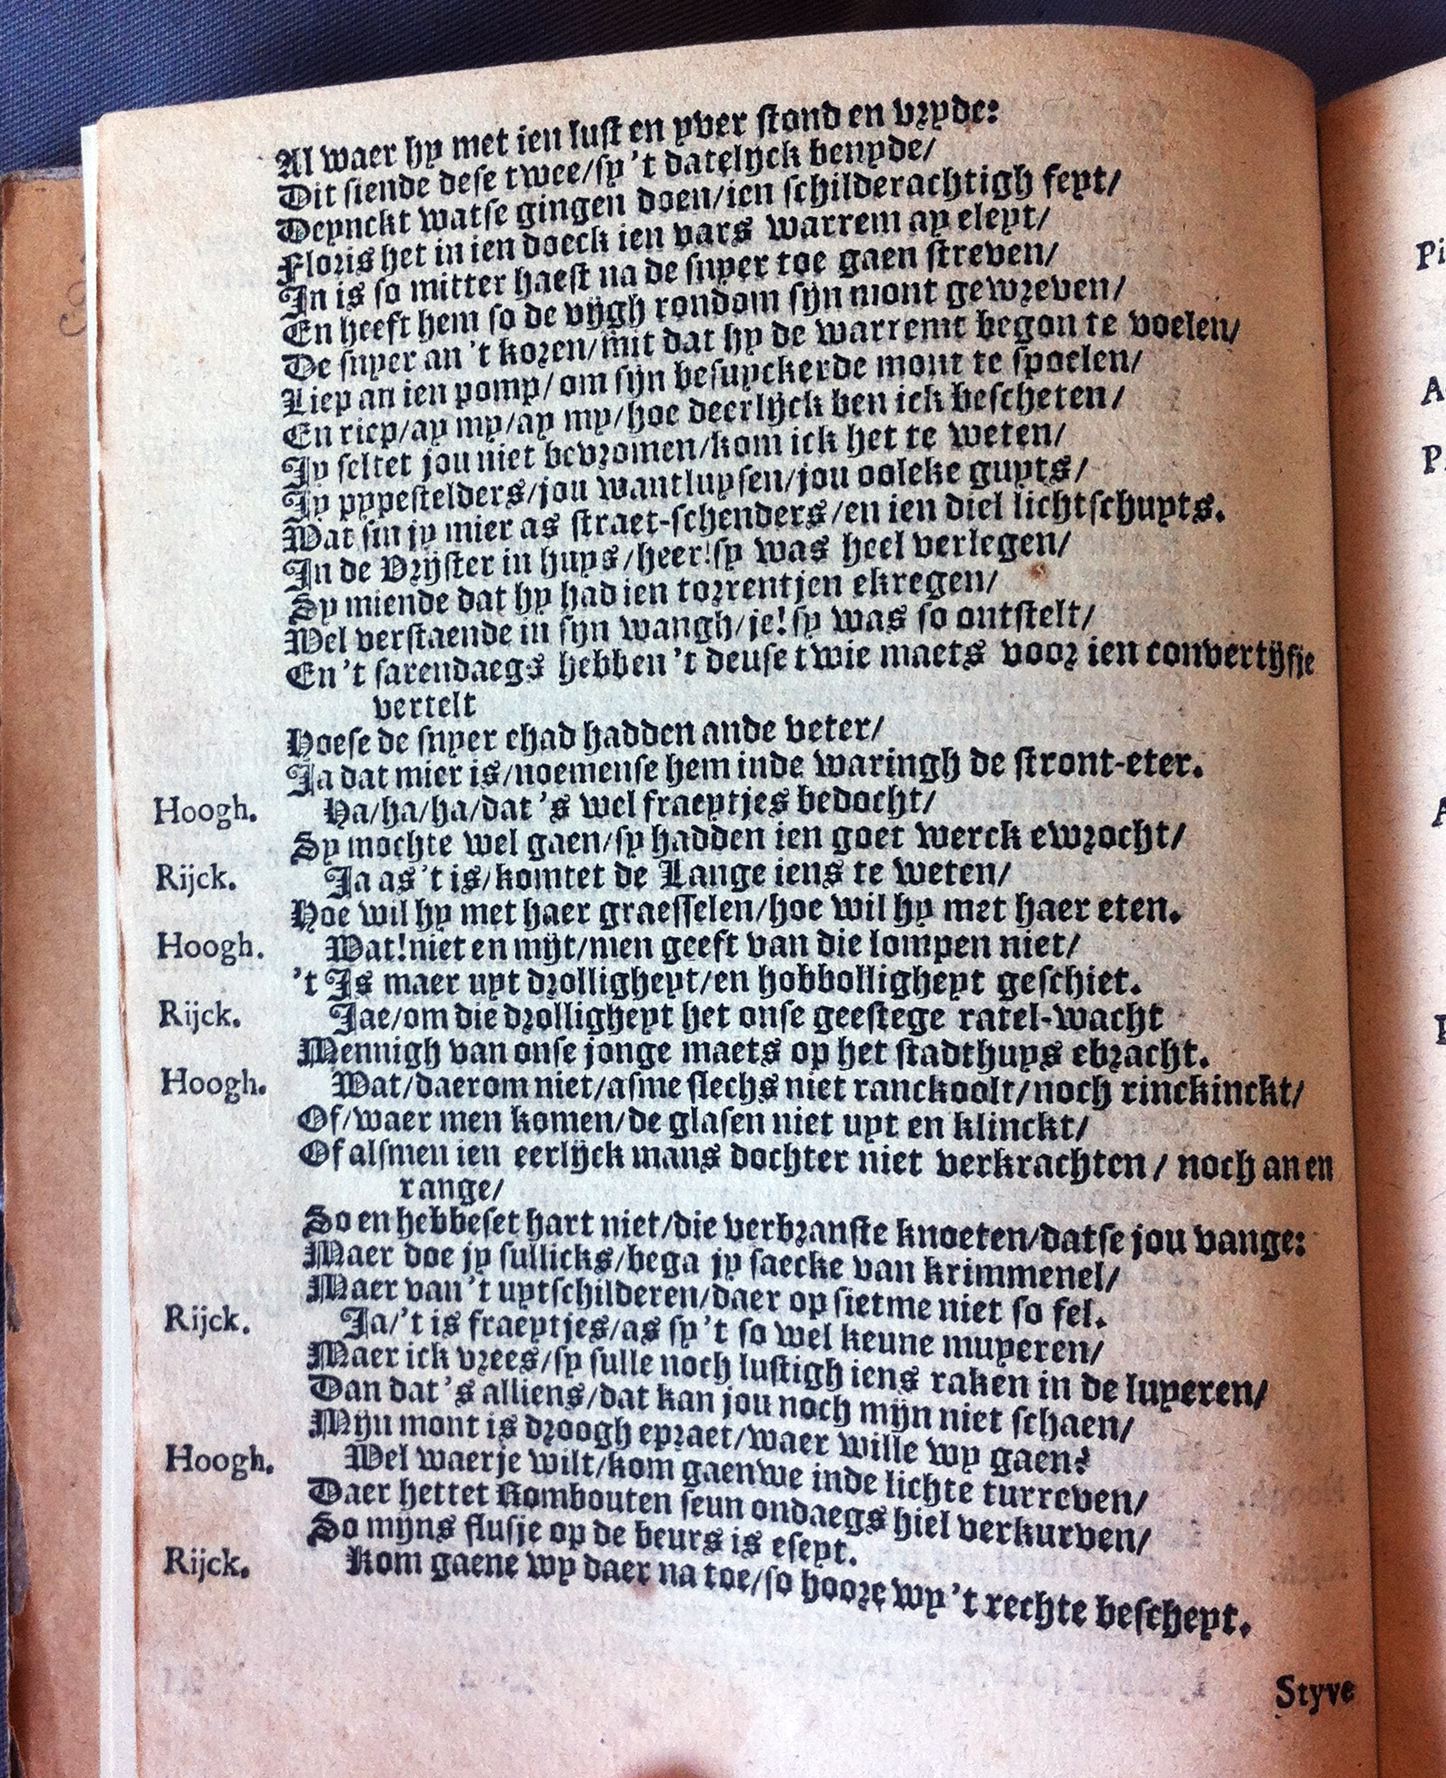 Al waer hy met ien lust en yver stond en vryde:
Dit siende dese twee/sy 't datelyck benyde/
Deynckt watse gingen doen/ien schilderachtigh feyt/
Floris het in ien doeck ien vars warrem ay eleyt/
In is so mitter haest na de snyer toe gaen streven/
En heeft hem so de vijgh rondom sijn mont gewreven/
De snyer an 't kozen/mit dat hy de warremt begon te voelen/
Liep an ien pomp/om sijn besuyckerde mont te spoelen/
En riep/ay my/ay my/hoe deerlijck ben ick bescheten/
Jy seltet jou niet bevromen/kom ick het te weten/
Jy pypestelders/jou wantluysen/jou ooleke guyts/
Wat sin jy mier as straet-schenders/en ien diel lichtschuyts.
In de Vrijster in huys/heer!sy was heel verlegen/
Sy miende dat hy had ien torrentjen ekregen/
Wel verstaende in sijn wangh/je!sy was so ontstelt/
En 't sarendaegs hebben 't deuse twie maets voor ien convertijfje
vertelt
Hoese de snyer ehad hadden ande veter/
Ja dat mier is/noemense hem inde waringh de stront-eter.
Hoogh. Ha/ha/ha/dat 's wel fraeytjes bedocht/
Sy mochte wel gaen/sy hadden ien goet werck ewrocht/
Rijck. Ja as 't is/komtet de Lange iens te weten/
Hoe wil hy met haer graesselen/hoe wil hy met haer eten.
Hoogh. Wat!niet en mijt/men geeft van die lompen niet/
't Is maer uyt drolligheyt/en hobbolligheyt geschiet.
Rijck. Jae/om die drolligheyt het onse geestege ratel-wacht
Mennigh van onse jonge maets op het stadthuys ebracht.
Hoogh. Wat/daerom niet/asme slechs niet ranckoolt/noch rinckinckt/
Of/waer men komen/de glasen niet uyt en klinckt/
Of alsmen ien eerlijck mans dochter niet verkrachten/ noch an en
range/
So en hebbeset hart niet/die verbranste knoeten/datse jou vange:
Maer doe jy sullicks/bega jy saecke van krimmenel/
Maer van 't uytschilderen/daer op sietme niet so fel.
Rijck. Ja/'t is fraeytjes/as sy 't so wel keune muyeren/
Maer ick vrees/sy sulle noch lustigh iens raken in de luyeren/
Dan dat 's alliens/dat kan jou noch mijn niet schaen/
Mijn mont is droogh epraet/waer wille wy gaen?
Hoogh. Wel waerje wilt/kom gaenwe inde lichte turreven/
Daer hettet Rombouten seun ondaegs hiel verkurven/
So mijns flusje op de beurs is eseyt.
Rijck. Kom gaene wy daer na toe/so hoore wy 't rechte bescheyt.
Styve